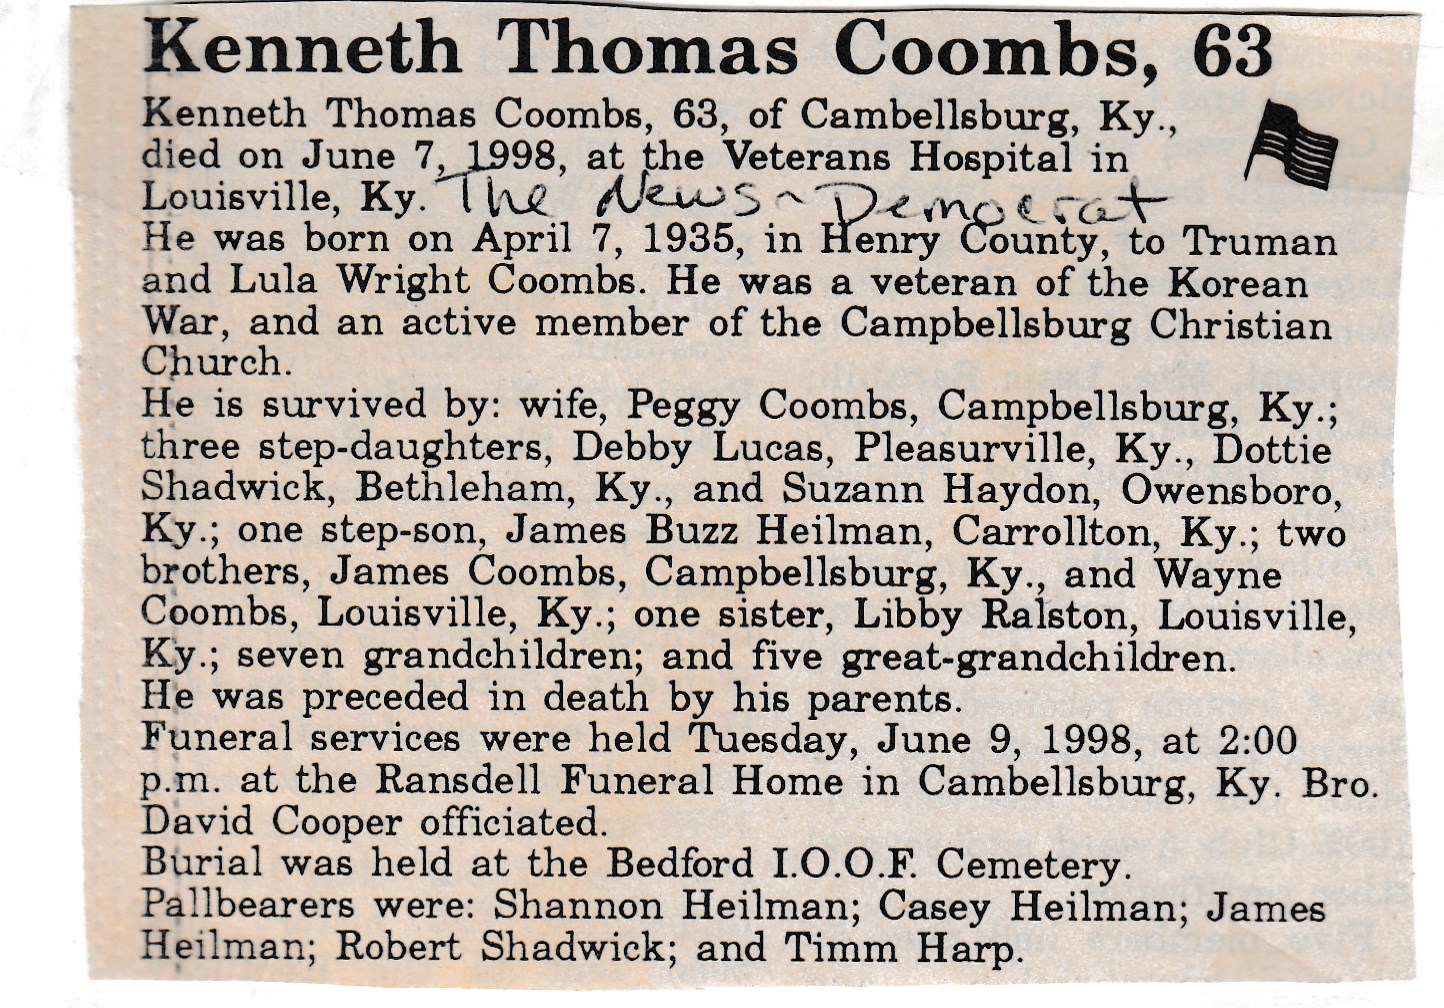 Kenneth Thomas Coombs, 63
Kenneth Thomas Coombs, 63, of Cambellsburg, Ky.,
died on June 7, 1998, at the Veterans Hospital in
Louisville, Ky. The News-Democrat
He was born on April 7, 1935, in Henry County, to Truman
and Lula Wright Coombs. He was a veteran of the Korean
War, and an active member of the Campbellsburg Christian
Church.
He is survived by: wife, Peggy Coombs, Campbellsburg, Ky.;
three step-daughters, Debby Lucas, Pleasurville, Ky., Dottie
Shadwick, Bethleham, Ky., and Suzann Haydon, Owensboro,
Ky.; one step-son, James Buzz Heilman, Carrollton, Ky.; two
brothers, James Coombs, Campbellsburg, Ky., and Wayne
Coombs, Louisville, Ky.; one sister, Libby Ralston, Louisville,
Ky.; seven grandchildren; and five great-grandchildren.
He was preceded in death by his parents.
Funeral services were held Tuesday, June 9, 1998, at 2:00
p.m. at the Ransdell Funeral Home in Cambellsburg, Ky. Bro.
David Cooper officiated.
Burial was held at the Bedford I.O.O.F. Cemetery.
Pallbearers were: Shannon Heilman; Casey Heilman; James
Heilman; Robert Shadwick; and Timm Harp.